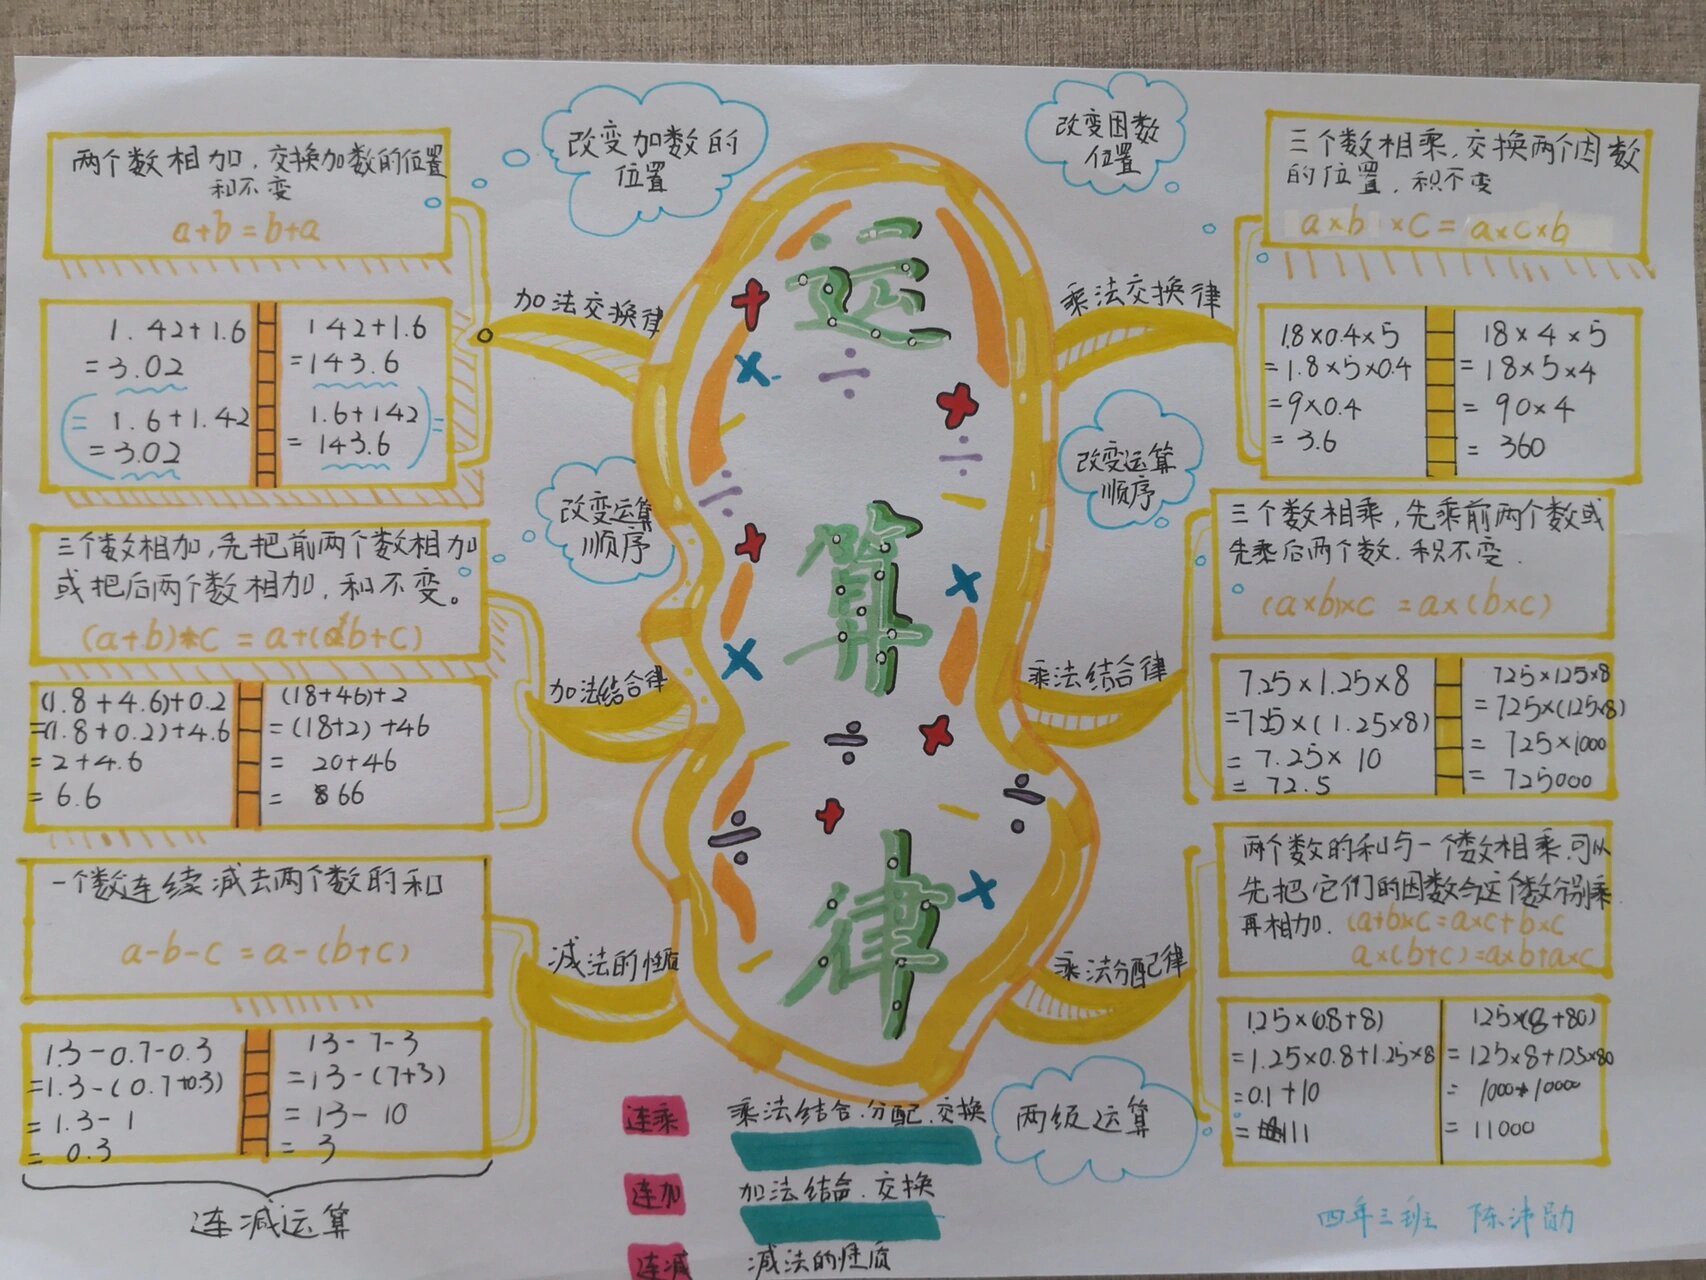 运
算
律
改变加数的
位置
两个数相加，交换加数的位置
和不变
a+b=b+a
加法交换律
1.42+1.6
=3.02
=1.6+1.42
=3.02
142+1.6
=143.6
1.6+142=
=143.6
改变运算
顺序
三个数相加，先把前两个数相加
或把后两个数相加，和不变。
(a+b)+c = a+(b+c)
加法结合律
(1.8+4.6)+0.2
=(1.8+0.2)+4.6
=2+4.6
=6.6
(18+46)+2
=(18+2)+46
= 20+46
= 66
一个数连续减去两个数的和
a-b-c=a-(b+c)
减法的性质
1.3-0.7-0.3
=1.3-(0.7+0.3)
=1.3-1
= 0.3
13-7-3
=13-(7+3)
=13-10
= 3
连减运算
改变因数
位置
三个数相乘，交换两个因数
的位置，积不变
a×b ×c=a×c×b
乘法交换律
1.8×0.4×5
=1.8×5×0.4
=9×0.4
=3.6
18×4×5
=18×5×4
= 90×4
= 360
改变运算
顺序
三个数相乘，先乘前两个数或
先乘后两个数．积不变．
(a×b)×c =a×(b×c)
乘法结合律
7.25×1.25×8
=7.25×(1.25×8)
= 7.25×10
= 72.5
725×125×8
=725×(125×8)
= 725×1000
= 725000
两个数的和与一个数相乘，可以
先把它们的因数与这个数分别乘
再相加．(a+b×c=a×c+b×c
a×(b+c)=a×b+a×c
乘法分配律
1.25×(0.8+8)
=1.25×0.8+1.25×8
=0.1+10
=111
125×(8+80)
=125×8+125×80
= 1000+10000
= 11000
两级运算
连乘 乘法结合.分配.交换
连加 加法结合．交换
连减 减法的性质
四年三班 陈沛勋